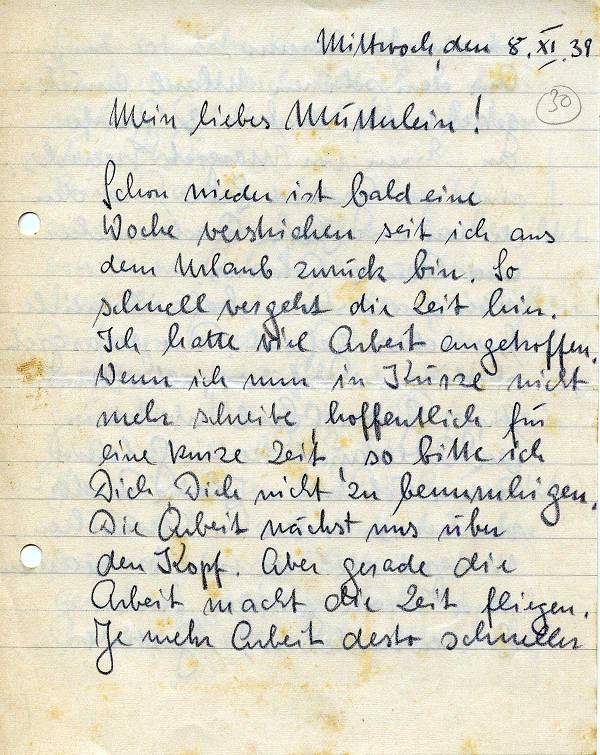 Mittwoch, den 8. XI. 39
30
Mein liebes Mütterlein!
Schon wieder ist bald eine
Woche verstrichen seit ich aus
dem Urlaub zurück bin. So
schnell vergeht die Zeit hier.
Ich hatte viel Arbeit angetroffen.
Wenn ich nun in Kürze nicht
mehr schreibe, hoffentlich für
eine kurze Zeit, so bitte ich
Dich Dich nicht zu beunruhigen.
Die Arbeit wächst uns über
den Kopf. Aber gerade die
Arbeit macht die Zeit fliegen.
Je mehr Arbeit desto schneller